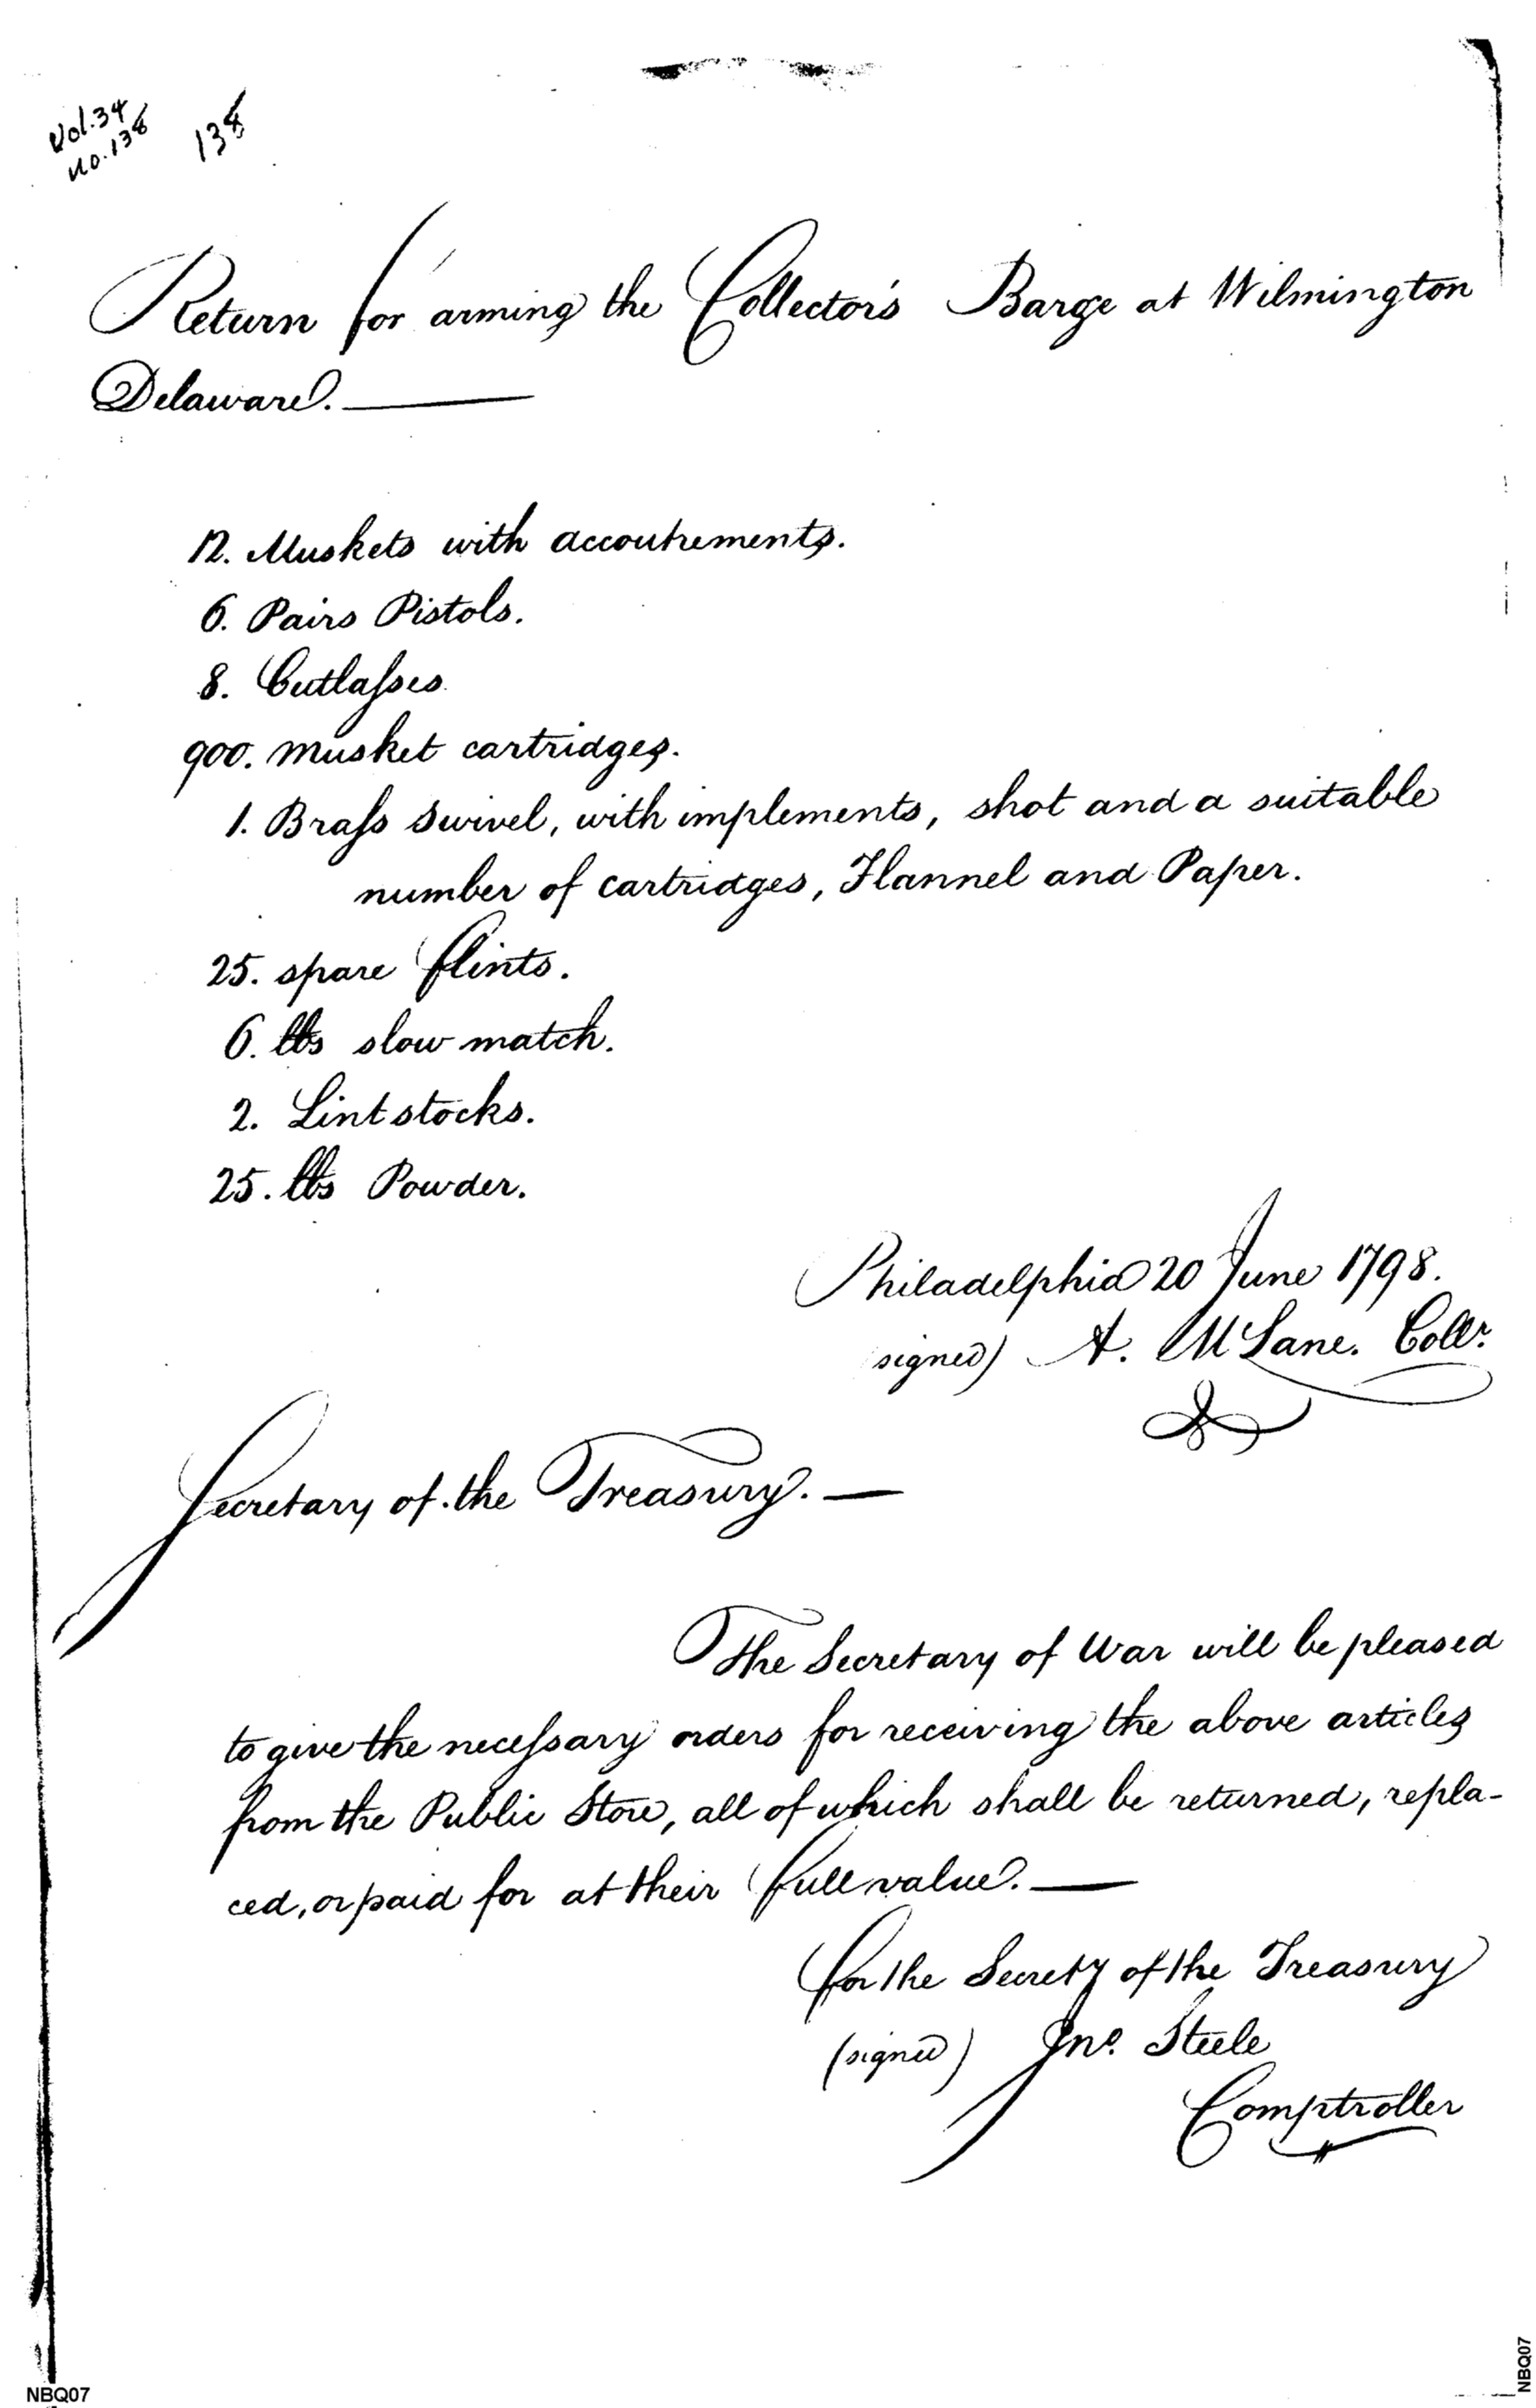 Vol. 34
No. 138
138
Return for arming the Collector's Barge at Wilmington
Delaware. —
12. Muskets with accoutrements.
6. Pairs Pistols.
8. Cutlaſses
900. musket cartridges.
1. Braſs Swivel, with implements, shot and a suitable
number of cartridges, Flannel and Paper.
25. spare flints.
6. lbs slow match.
2. Lintstocks.
25. lbs Powder.
Philadelphia 20 June 1798.
signed) A. McLane. Collr.
Secretary of the Treasury. —
The Secretary of War will be pleased
to give the neceſsary orders for receiving the above articles
from the Public Store, all of which shall be returned, repla-
ced, or paid for at their full value. —
for the Secrety of the Treasury
(signed) Jno. Steele
Comptroller
NBQ07
NBQ07